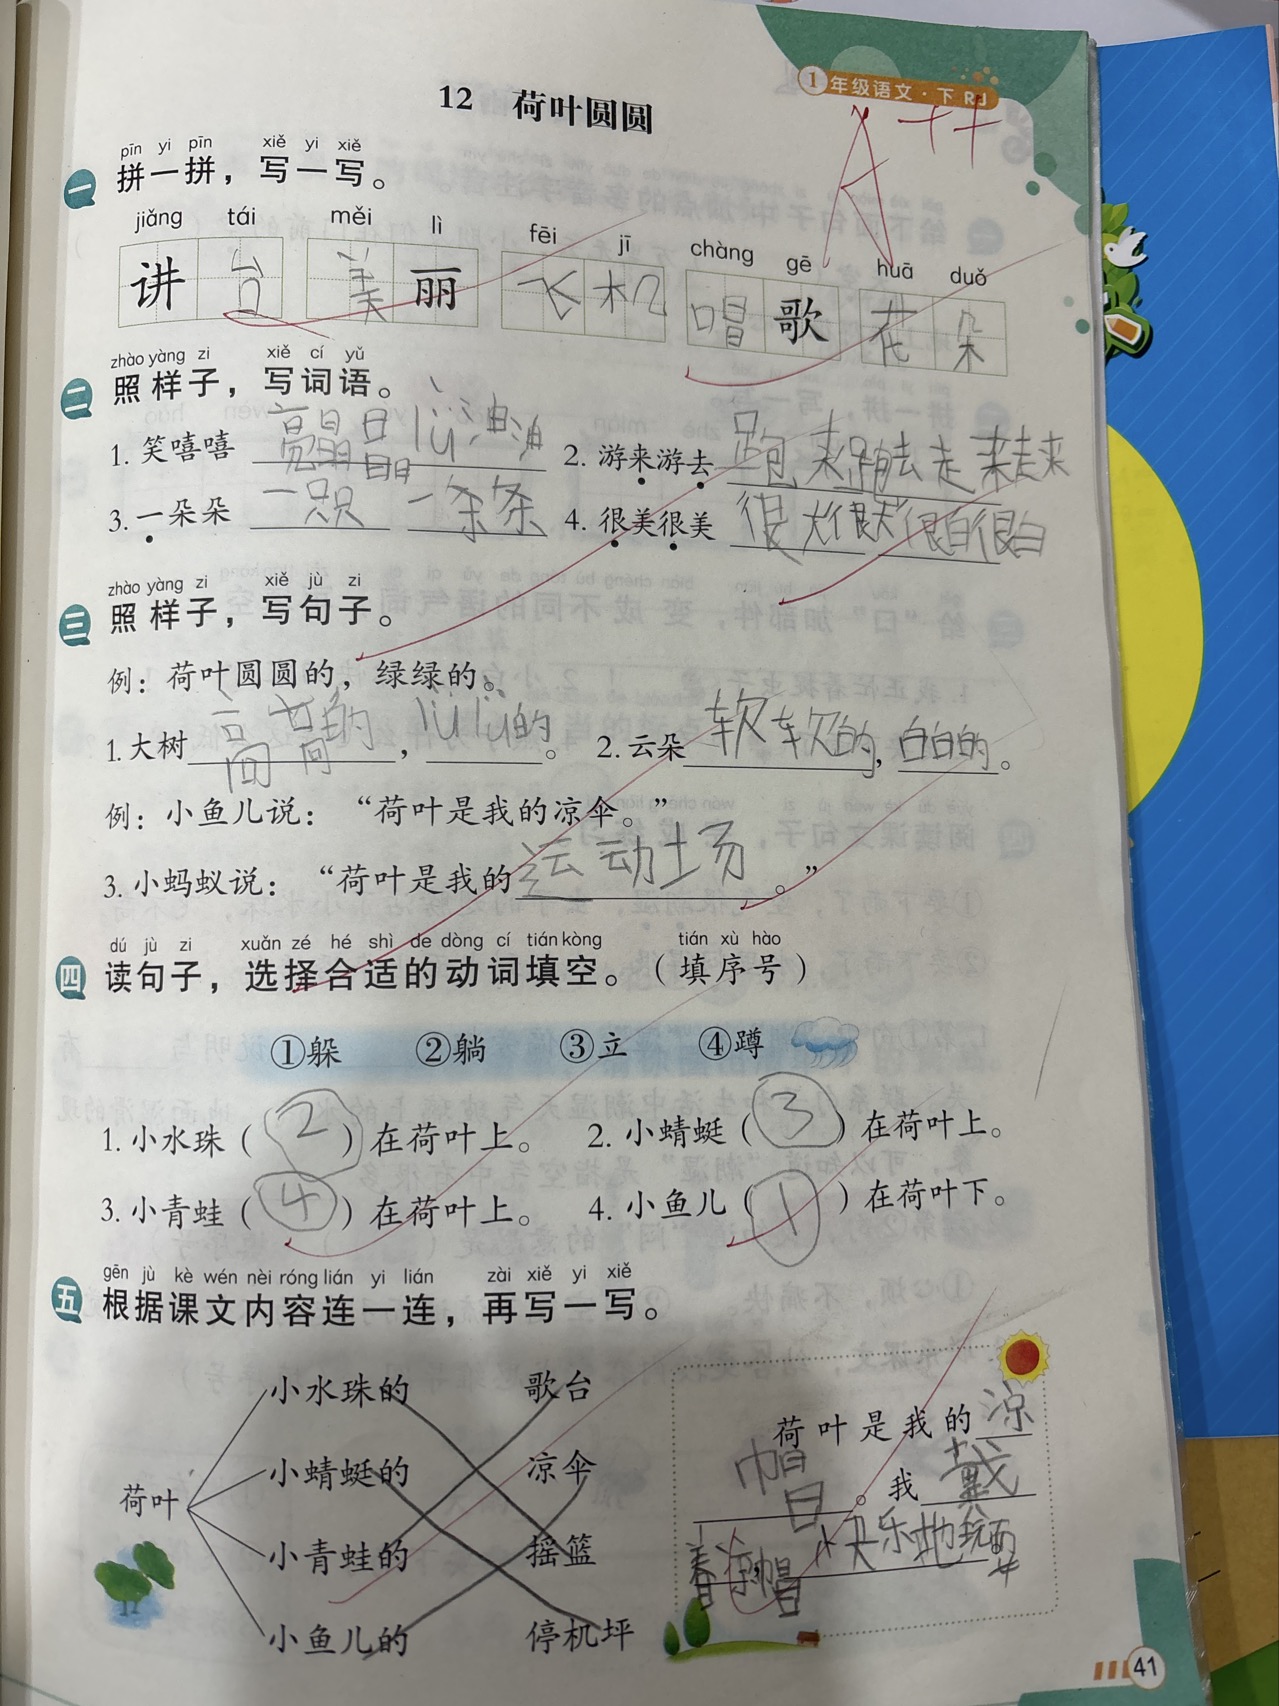 1年级语文·下 RJ
A++
12 荷叶圆圆
pīn yi pīn xiě yi xiě
一 拼一拼，写一写。
jiǎng tái měi lì fēi jī chàng gē huā duǒ
讲台 美丽 飞机 唱歌 花朵
zhào yàng zi xiě cí yǔ
二 照样子，写词语。
1. 笑嘻嘻 亮晶晶 lǜ油油 2. 游来游去 跑来跑去 走来走来
3. 一朵朵 一只只 一条条 4. 很美很美 很大很大 很白很白
zhào yàng zi xiě jù zi
三 照样子，写句子。
例：荷叶圆圆的，绿绿的。
1. 大树高高的，lǜlǜ的。 2. 云朵软软的，白白的。
例：小鱼儿说：“荷叶是我的凉伞。”
3. 小蚂蚁说：“荷叶是我的运动场。”
dú jù zi xuǎn zé hé shì de dòng cí tián kòng tián xù hào
四 读句子，选择合适的动词填空。（填序号）
①躲 ②躺 ③立 ④蹲
1. 小水珠（2）在荷叶上。 2. 小蜻蜓（3）在荷叶上。
3. 小青蛙（4）在荷叶上。 4. 小鱼儿（1）在荷叶下。
gēn jù kè wén nèi róng lián yi lián zài xiě yi xiě
五 根据课文内容连一连，再写一写。
小水珠的 歌台
小蜻蜓的 凉伞
荷叶
小青蛙的 摇篮
小鱼儿的 停机坪
荷叶是我的凉
帽。我戴
着凉帽快乐地玩耍
41